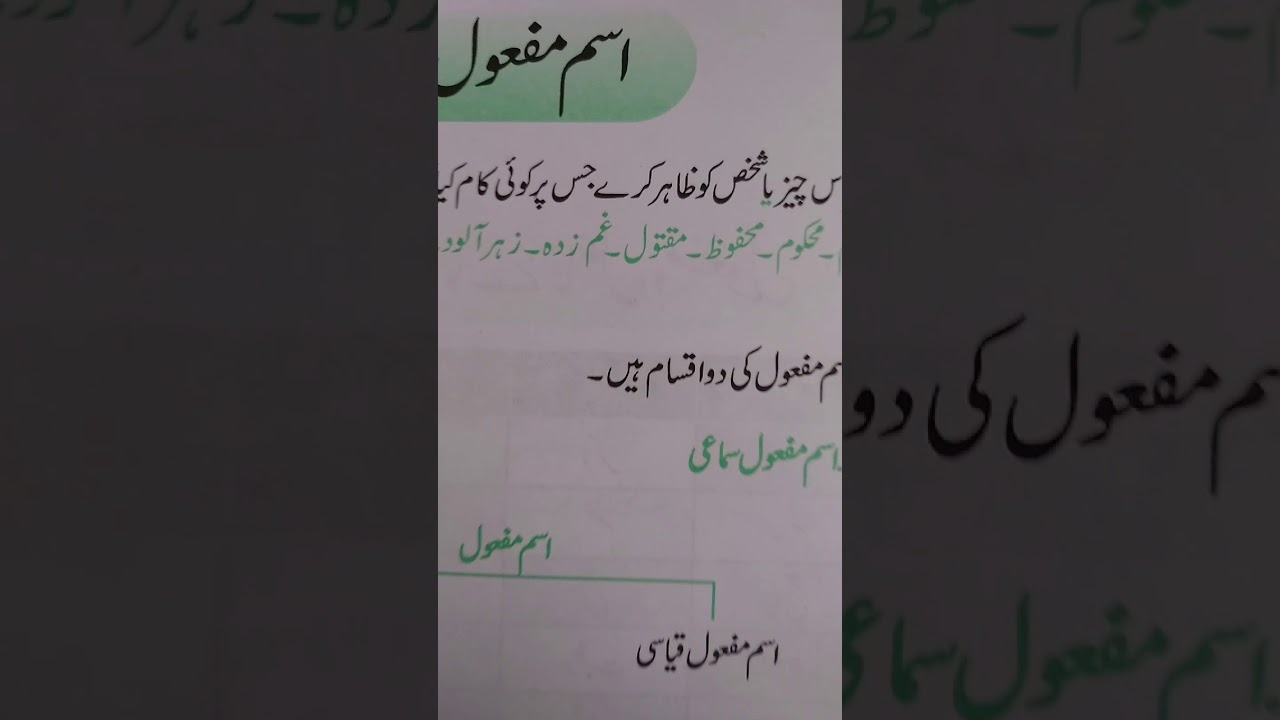 اسم مفعول
س چیز یا شخص کو ظاہر کرے جس پر کوئی کام کیا
۔ محکوم ۔ محفوظ ۔ مقتول ۔ غم زدہ ۔ زہر آلود
م مفعول کی دو اقسام ہیں ۔
اسم مفعول سماعی
اسم مفعول
اسم مفعول قیاسی